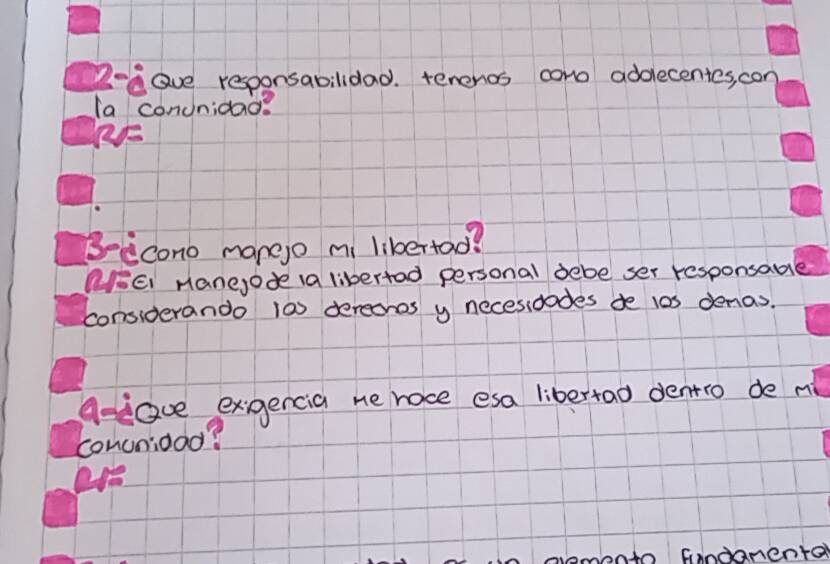 2-¿Que responsabilidad. tenemos como adolecentes, con
la comunidad?
R/=
3-¿como manejo mi libertad?
R/= El Manejo de la libertad personal debe ser responsable
considerando las derechos y necesidades de los demas.
4-¿Que exigencia me hace esa libertad dentro de mi
comunidad?
R/=
un elemento fundamental